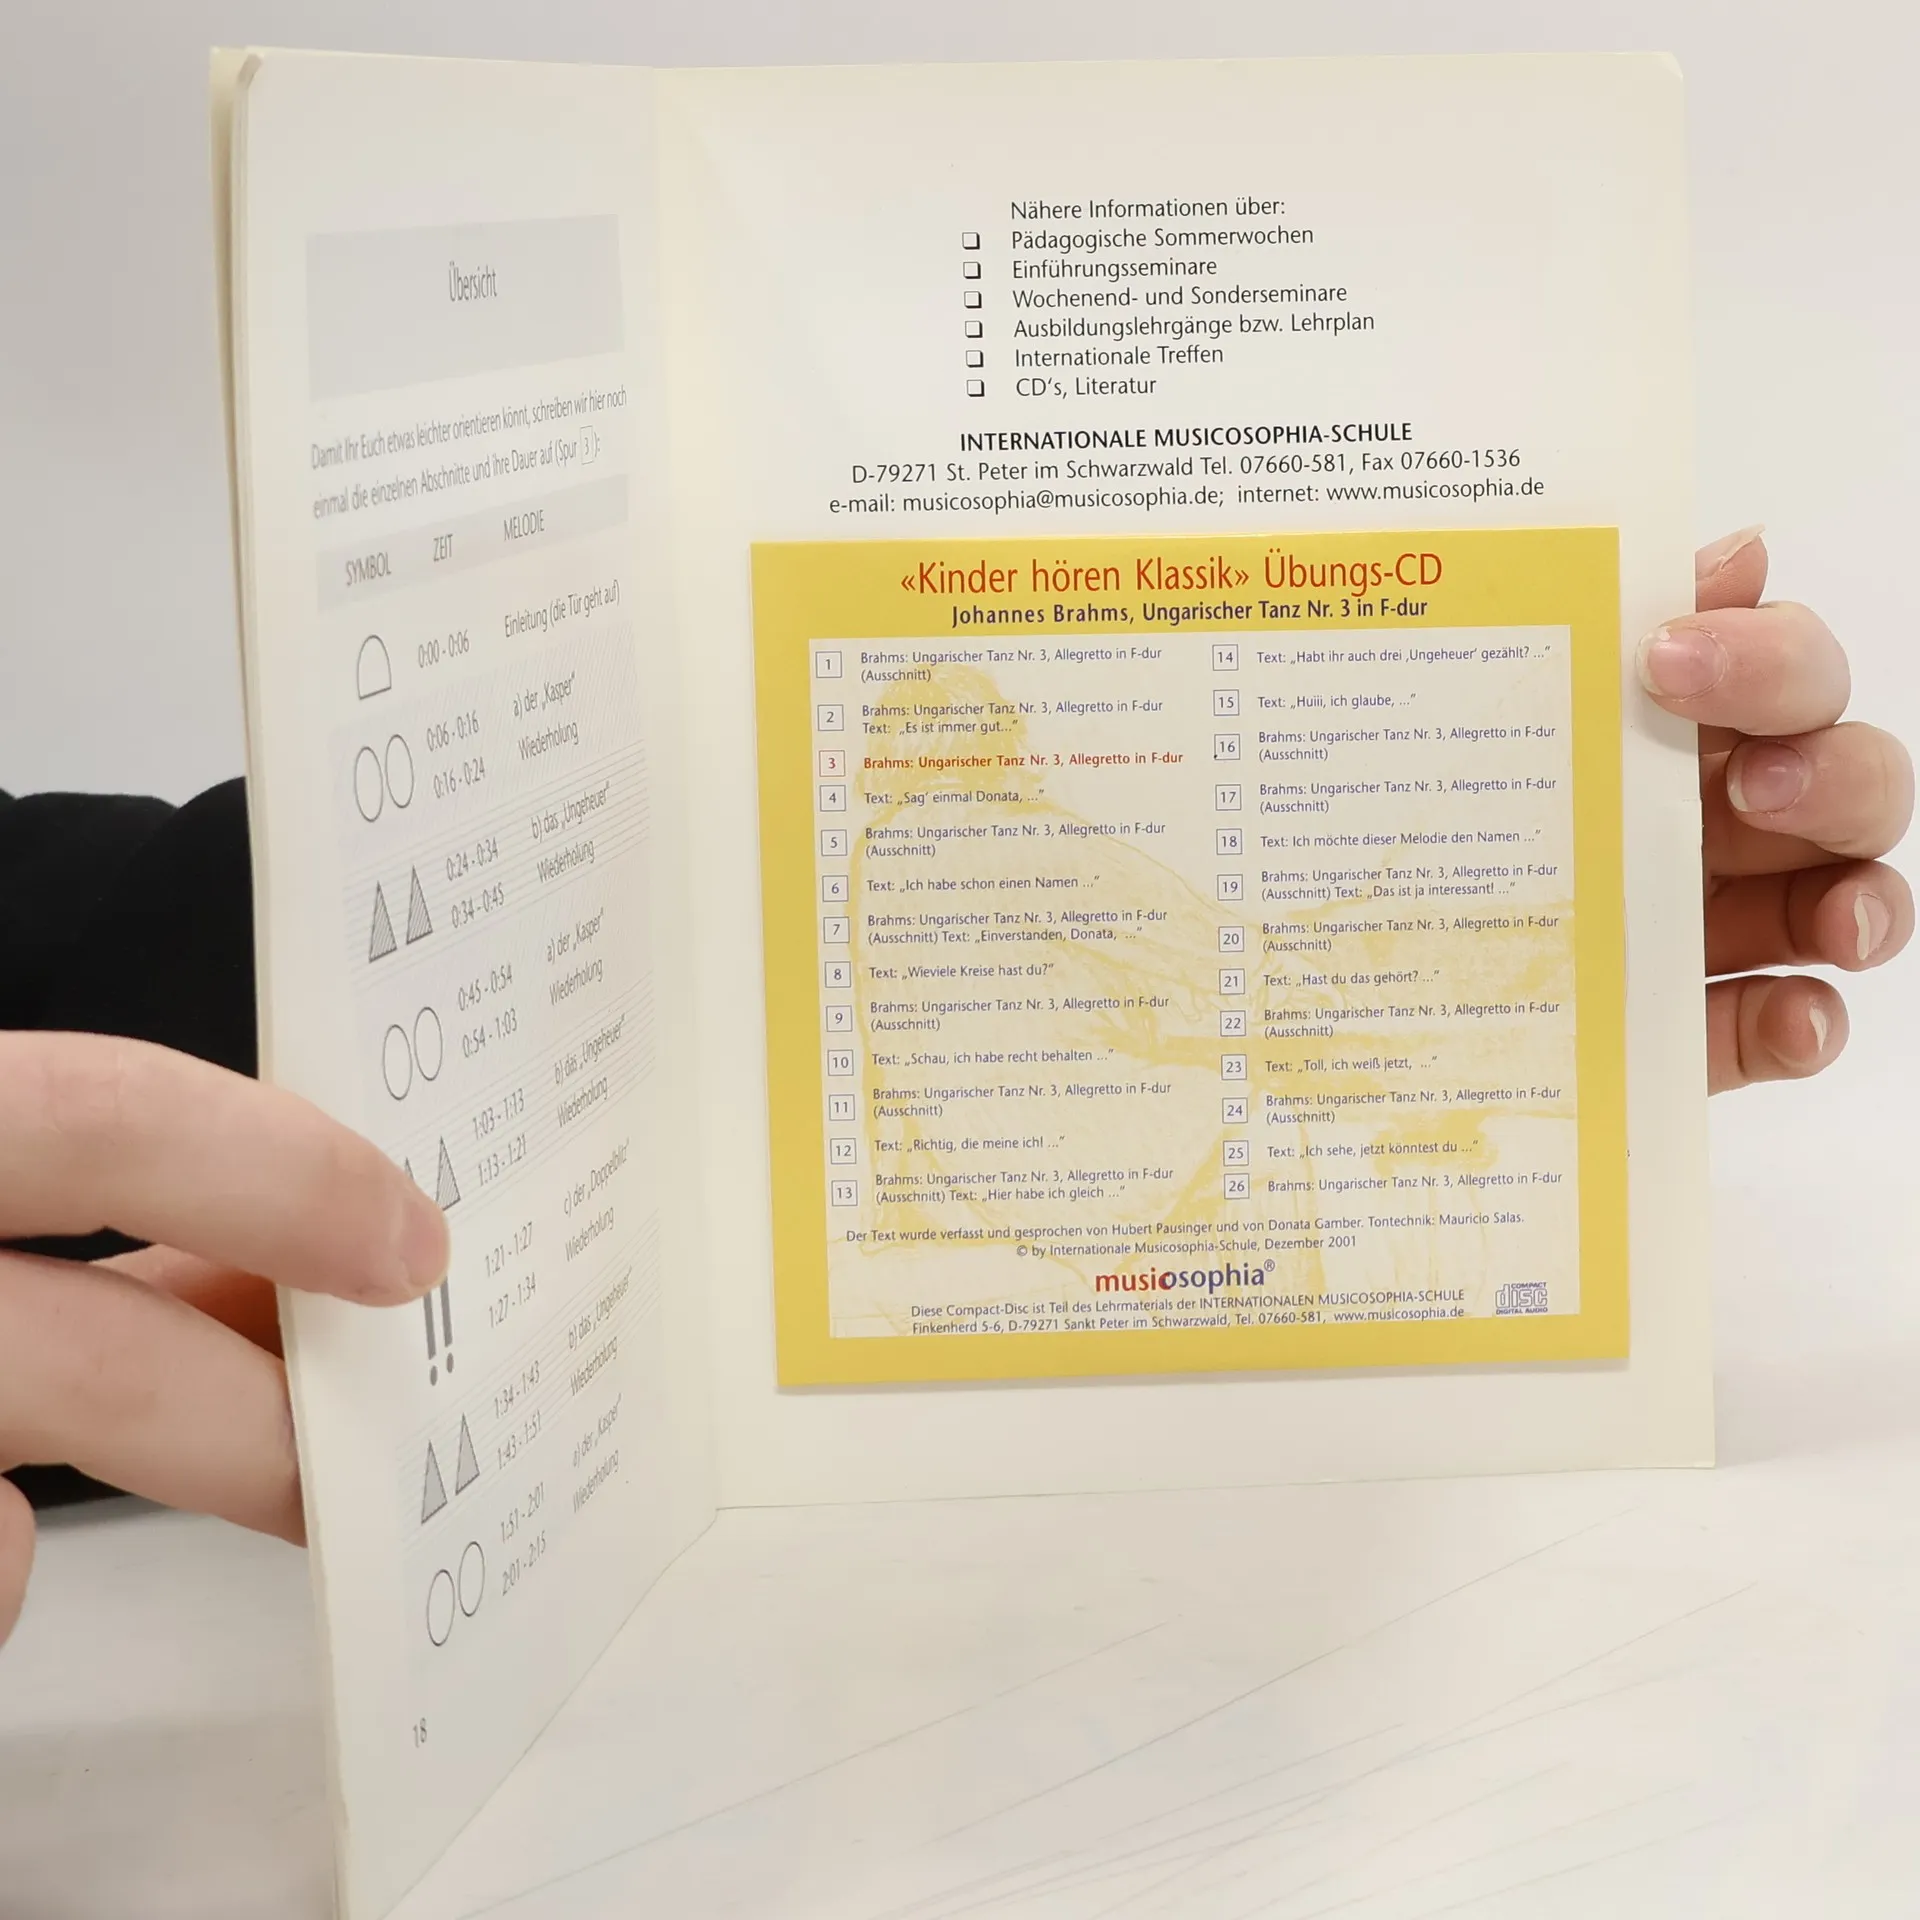 Übersicht
Damit Ihr Euch etwas leichter orientieren könnt, schreiben wir hier noch
einmal die einzelnen Abschnitte und ihre Dauer auf (Spur 3):
SYMBOL ZEIT MELODIE
0:00 - 0:06 Einleitung (die Tür geht auf)
0:06 - 0:16 a) der „Kasper“
0:16 - 0:24 Wiederholung
0:24 - 0:34 b) das „Ungeheuer“
0:34 - 0:45 Wiederholung
0:45 - 0:54 a) der „Kasper“
0:54 - 1:03 Wiederholung
1:03 - 1:13 b) das „Ungeheuer“
1:13 - 1:21 Wiederholung
1:21 - 1:27 c) der „Doppelblitz“
1:27 - 1:34 Wiederholung
1:34 - 1:43 b) das „Ungeheuer“
1:43 - 1:51 Wiederholung
1:51 - 2:01 a) der „Kasper“
2:01 - 2:15 Wiederholung
18
Nähere Informationen über:
❏ Pädagogische Sommerwochen
❏ Einführungsseminare
❏ Wochenend- und Sonderseminare
❏ Ausbildungslehrgänge bzw. Lehrplan
❏ Internationale Treffen
❏ CD‘s, Literatur
INTERNATIONALE MUSICOSOPHIA-SCHULE
D-79271 St. Peter im Schwarzwald Tel. 07660-581, Fax 07660-1536
e-mail: musicosophia@musicosophia.de; internet: www.musicosophia.de
«Kinder hören Klassik» Übungs-CD
Johannes Brahms, Ungarischer Tanz Nr. 3 in F-dur
1 Brahms: Ungarischer Tanz Nr. 3, Allegretto in F-dur
(Ausschnitt)
2 Brahms: Ungarischer Tanz Nr. 3, Allegretto in F-dur
Text: „Es ist immer gut...“
3 Brahms: Ungarischer Tanz Nr. 3, Allegretto in F-dur
4 Text: „Sag‘ einmal Donata, ...“
5 Brahms: Ungarischer Tanz Nr. 3, Allegretto in F-dur
(Ausschnitt)
6 Text: „Ich habe schon einen Namen ...“
7 Brahms: Ungarischer Tanz Nr. 3, Allegretto in F-dur
(Ausschnitt) Text: „Einverstanden, Donata, ...“
8 Text: „Wieviele Kreise hast du?“
9 Brahms: Ungarischer Tanz Nr. 3, Allegretto in F-dur
(Ausschnitt)
10 Text: „Schau, ich habe recht behalten ...“
11 Brahms: Ungarischer Tanz Nr. 3, Allegretto in F-dur
(Ausschnitt)
12 Text: „Richtig, die meine ich! ...“
13 Brahms: Ungarischer Tanz Nr. 3, Allegretto in F-dur
(Ausschnitt) Text: „Hier habe ich gleich ...“
14 Text: „Habt ihr auch drei ‚Ungeheuer‘ gezählt? ...“
15 Text: „Huiii, ich glaube, ...“
16 Brahms: Ungarischer Tanz Nr. 3, Allegretto in F-dur
(Ausschnitt)
17 Brahms: Ungarischer Tanz Nr. 3, Allegretto in F-dur
(Ausschnitt)
18 Text: Ich möchte dieser Melodie den Namen ...“
19 Brahms: Ungarischer Tanz Nr. 3, Allegretto in F-dur
(Ausschnitt) Text: „Das ist ja interessant! ...“
20 Brahms: Ungarischer Tanz Nr. 3, Allegretto in F-dur
(Ausschnitt)
21 Text: „Hast du das gehört? ...“
22 Brahms: Ungarischer Tanz Nr. 3, Allegretto in F-dur
(Ausschnitt)
23 Text: „Toll, ich weiß jetzt, ...“
24 Brahms: Ungarischer Tanz Nr. 3, Allegretto in F-dur
(Ausschnitt)
25 Text: „Ich sehe, jetzt könntest du ...“
26 Brahms: Ungarischer Tanz Nr. 3, Allegretto in F-dur
Der Text wurde verfasst und gesprochen von Hubert Pausinger und von Donata Gamber. Tontechnik: Mauricio Salas.
© by Internationale Musicosophia-Schule, Dezember 2001
musicosophia®
Diese Compact-Disc ist Teil des Lehrmaterials der INTERNATIONALEN MUSICOSOPHIA-SCHULE
Finkenherd 5-6, D-79271 Sankt Peter im Schwarzwald, Tel. 07660-581, www.musicosophia.de
COMPACT
disc
DIGITAL AUDIO